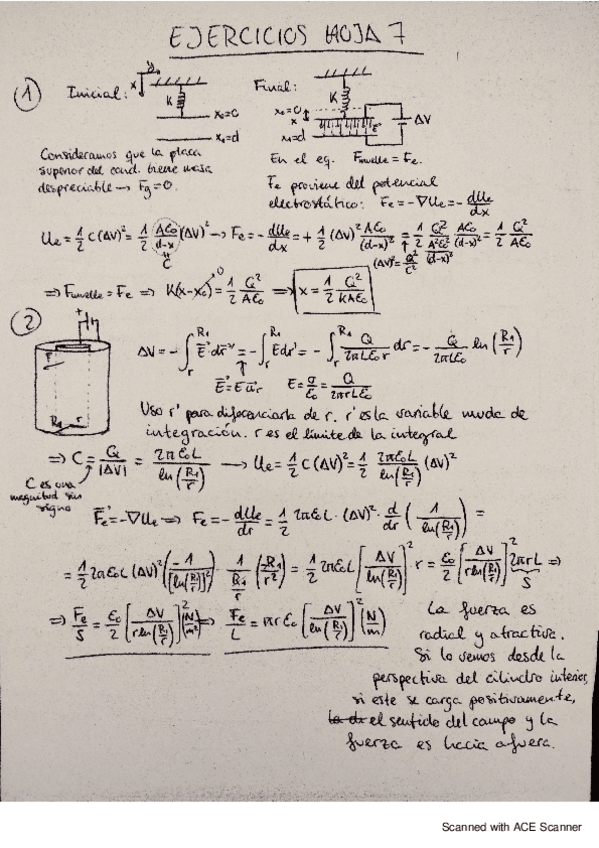 EJERCICIOS HOJA 7
① Inicial: x K x₀=0 x₁=d
Final: K x₀=0 x x₁=d ΔV
Consideramos que la placa
superior del cond. tiene masa
despreciable → Fg=0.
En el eq. Fmuelle = Fe.
Fe proviene del potencial
electrostático: Fe=-∇Ue=-dUe/dx
Ue = 1/2 C(ΔV)² = 1/2 Aε₀/(d-x) (ΔV)² → Fe=-dUe/dx = +1/2 (ΔV)² Aε₀/(d-x)² = 1/2 Q²/(A²ε₀²/(d-x)²) Aε₀/(d-x)² = 1/2 Q²/Aε₀
C
(ΔV)²=Q²/C²
⇒ Fmuelle = Fe ⇒ K(x-x₀) = 1/2 Q²/Aε₀ ⇒ x = 1/2 Q²/KAε₀
0
②
+ -
r
R₁ r
ΔV = -∫ᵣ^R₁ E⃗' dr⃗' = -∫ᵣ^R₁ Edr' = -∫ᵣ^R₁ Q/2πLε₀r dr = -Q/2πLε₀ ln(R₁/r)
E⃗=E u⃗r E=σ/ε₀ = Q/2πrLε₀
Uso r' para diferenciarla de r. r' es la variable muda de
integración. r es el límite de la integral
⇒ C = Q/|ΔV| = 2πε₀L/ln(R₁/r) → Ue = 1/2 C(ΔV)² = 1/2 2πε₀L/ln(R₁/r) (ΔV)²
C es una
magnitud sin
signo
F⃗e=-∇Ue ⇒ Fe=-dUe/dr = 1/2 2πε₀L · (ΔV)² · d/dr (1/ln(R₁/r)) =
= 1/2 2πε₀L (ΔV)² (-1/[ln(R₁/r)]²) · 1/(R₁/r) (-R₁/r²) = 1/2 2πε₀L [ΔV/ln(R₁/r)]² r = ε₀/2 [ΔV/rln(R₁/r)]² 2πrL ⇒
S
⇒ Fe/S = ε₀/2 [ΔV/rln(R₁/r)]² [N/m²] ⇒ Fe/L = πrε₀ [ΔV/ln(R₁/r)]² [N/m]
La fuerza es
radial y atractiva.
Si lo vemos desde la
perspectiva del cilindro interior,
si este se carga positivamente,
el sentido del campo y la
fuerza es hacia afuera.
Scanned with ACE Scanner